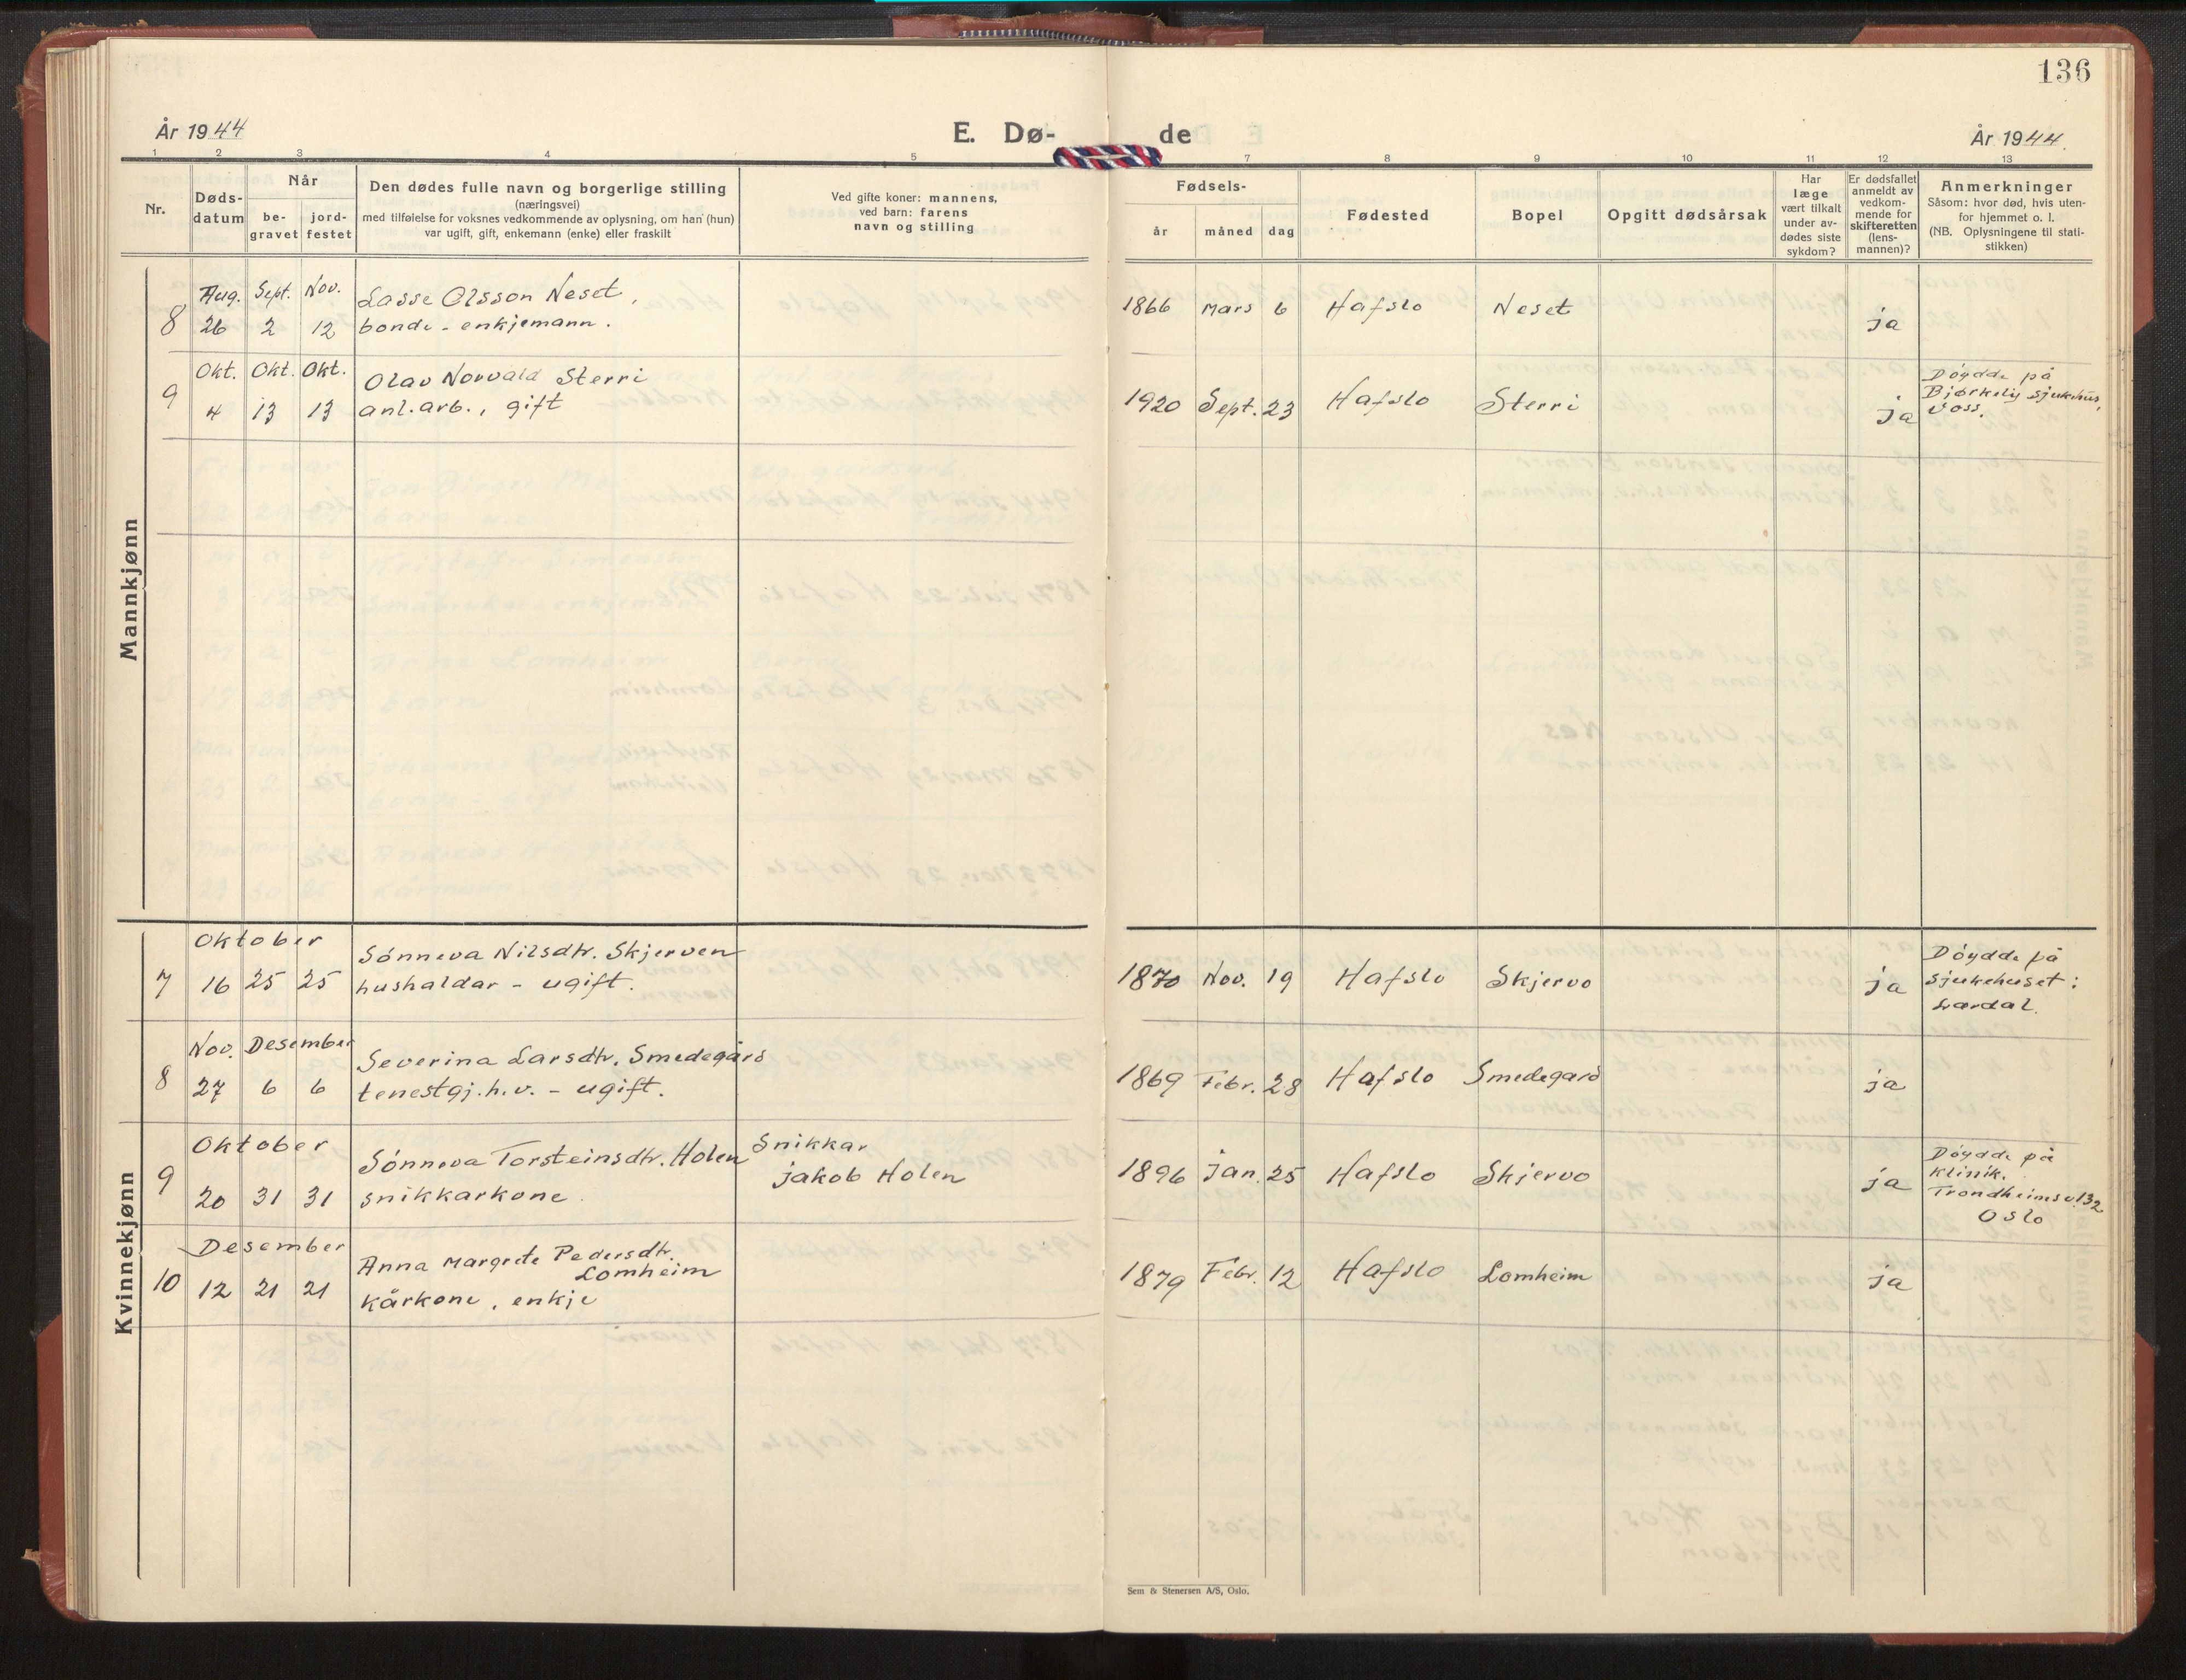 136
År 1944
E. Dø- de
År 1944.
1 2 3 4 5 7 8 9 10 11 12 13
Nr.
Døds-
datum
Når
be-
gravet
jord-
festet
Den dødes fulle navn og borgerlige stilling
(næringsvei)
med tilføielse for voksnes vedkommende av oplysning, om han (hun)
var ugift, gift, enkemann (enke) eller fraskilt
Ved gifte koner: mannens,
ved barn: farens
navn og stilling
Fødsels-
år måned dag
Fødested
Bopel
Opgitt dødsårsak
Har
læge
vært tilkalt
under av-
dødes siste
sykdom?
Er dødsfallet
anmeldt av
vedkom-
mende for
skifteretten
(lens-
mannen)?
Anmerkninger
Såsom: hvor død, hvis uten-
for hjemmet o. l.
(NB. Oplysningene til stati-
stikken)
Mannkjønn
Aug. Sept. Nov. Lasse Olsson Neset,
8 26 2 12 bonde - enkjemann. 1866 Mars 6 Hafslo Neset ja
Okt. Okt. Okt. Olav Norvald Sterri
9 4 13 13 anl.arb., gift 1920 Sept. 23 Hafslo Sterri ja
Döydde på
Bjørkely sjukehus,
Voss.
Kvinnekjønn
Oktober Sönneva Nilsdtr. Skjerven
7 16 25 25 hushaldar - ugift. 1870 Nov. 19 Hafslo Skjervo ja
Döydde på
sjukehuset i
Lærdal.
Nov. Desember Severina Larsdtr. Smedegård
8 27 6 6 tenestgj. h.v. - ugift. 1869 Febr. 28 Hafslo Smedegard ja
Oktober Sönneva Torsteinsdtr. Holen Snikkar
9 20 31 31 snikkarkone. Jakob Holen 1896 Jan. 25 Hafslo Skjervo ja
Döydde på
klinik.
Trondheimsv. 132
Oslo
Desember Anna Margrete Pedersdtr.
Lomheim
10 12 21 21 kårkone, enkje 1879 Febr. 12 Hafslo Lomheim ja
Sem & Stenersen A/S, Oslo.